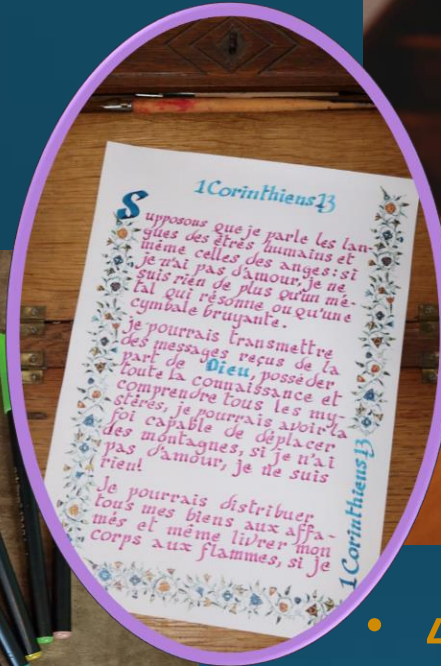 1Corinthiens13
Supposons que je parle les lan-
gues des êtres humains et
même celles des anges: si
je n'ai pas d'amour, je ne
suis rien de plus qu'un mé-
tal qui résonne ou qu'une
cymbale bruyante.
je pourrais transmettre
des messages reçus de la
part de Dieu, posséder
toute la connaissance et
comprendre tous les my-
stères, je pourrais avoir la
foi capable de déplacer
des montagnes, si je n'ai
pas d'amour, je ne suis
rien!
Je pourrais distribuer
tous mes biens aux affa-
més et même livrer mon
corps aux flammes, si je
1Corinthiens13